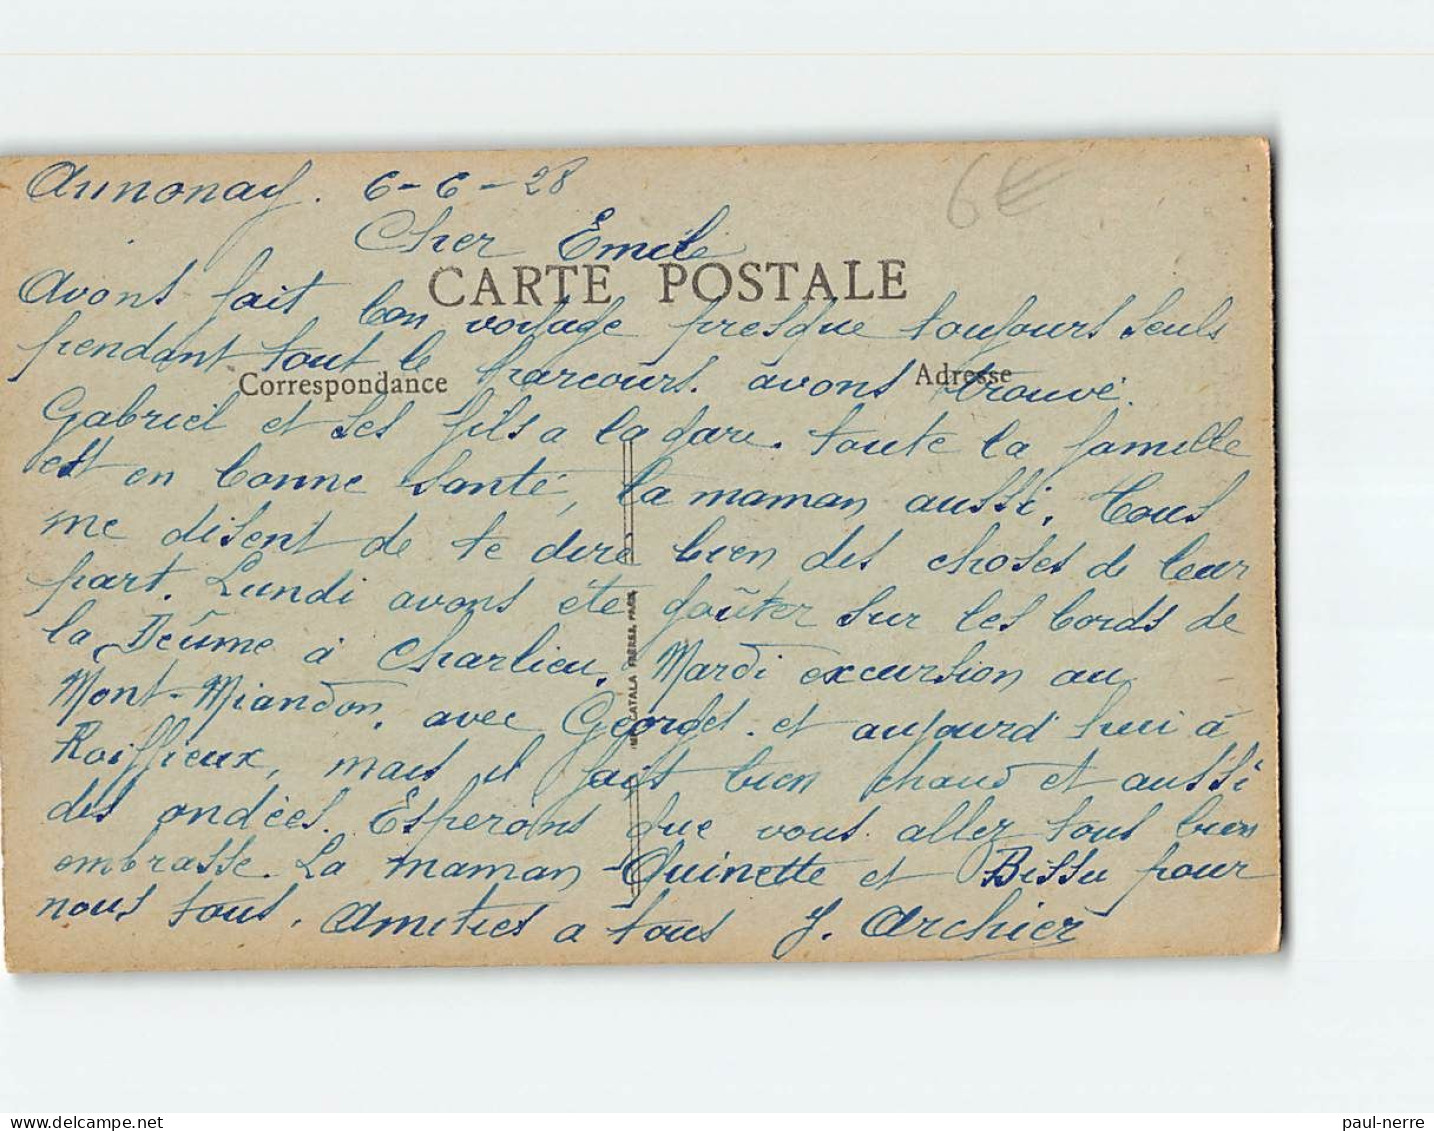 Annonay. 6-6-28
6€
Cher Emile
CARTE POSTALE
Avons fait bon voyage presque toujours seuls
pendant tout le parcours. avons trouvé
Correspondance
Adresse
Gabriel et ses fils a la gare. toute la famille
est en bonne santé, la maman aussi. Tous
me disent de te dire bien des choses de leur
part. Lundi avons été goûter sur les bords de
la Deûme à Charlieu. Mardi excursion au
Mont-Miandon, avec Georges. et aujourd'hui à
Roiffieux, mais il fait bien chaud et aussi
des ondées. Esperons que vous allez tous bien
embrasse. La maman Quinette et Bissu pour
nous tous. Amitiés a tous J. Archier
CATALA FRÈRES, PARIS
delcampe.net
paul-nerre